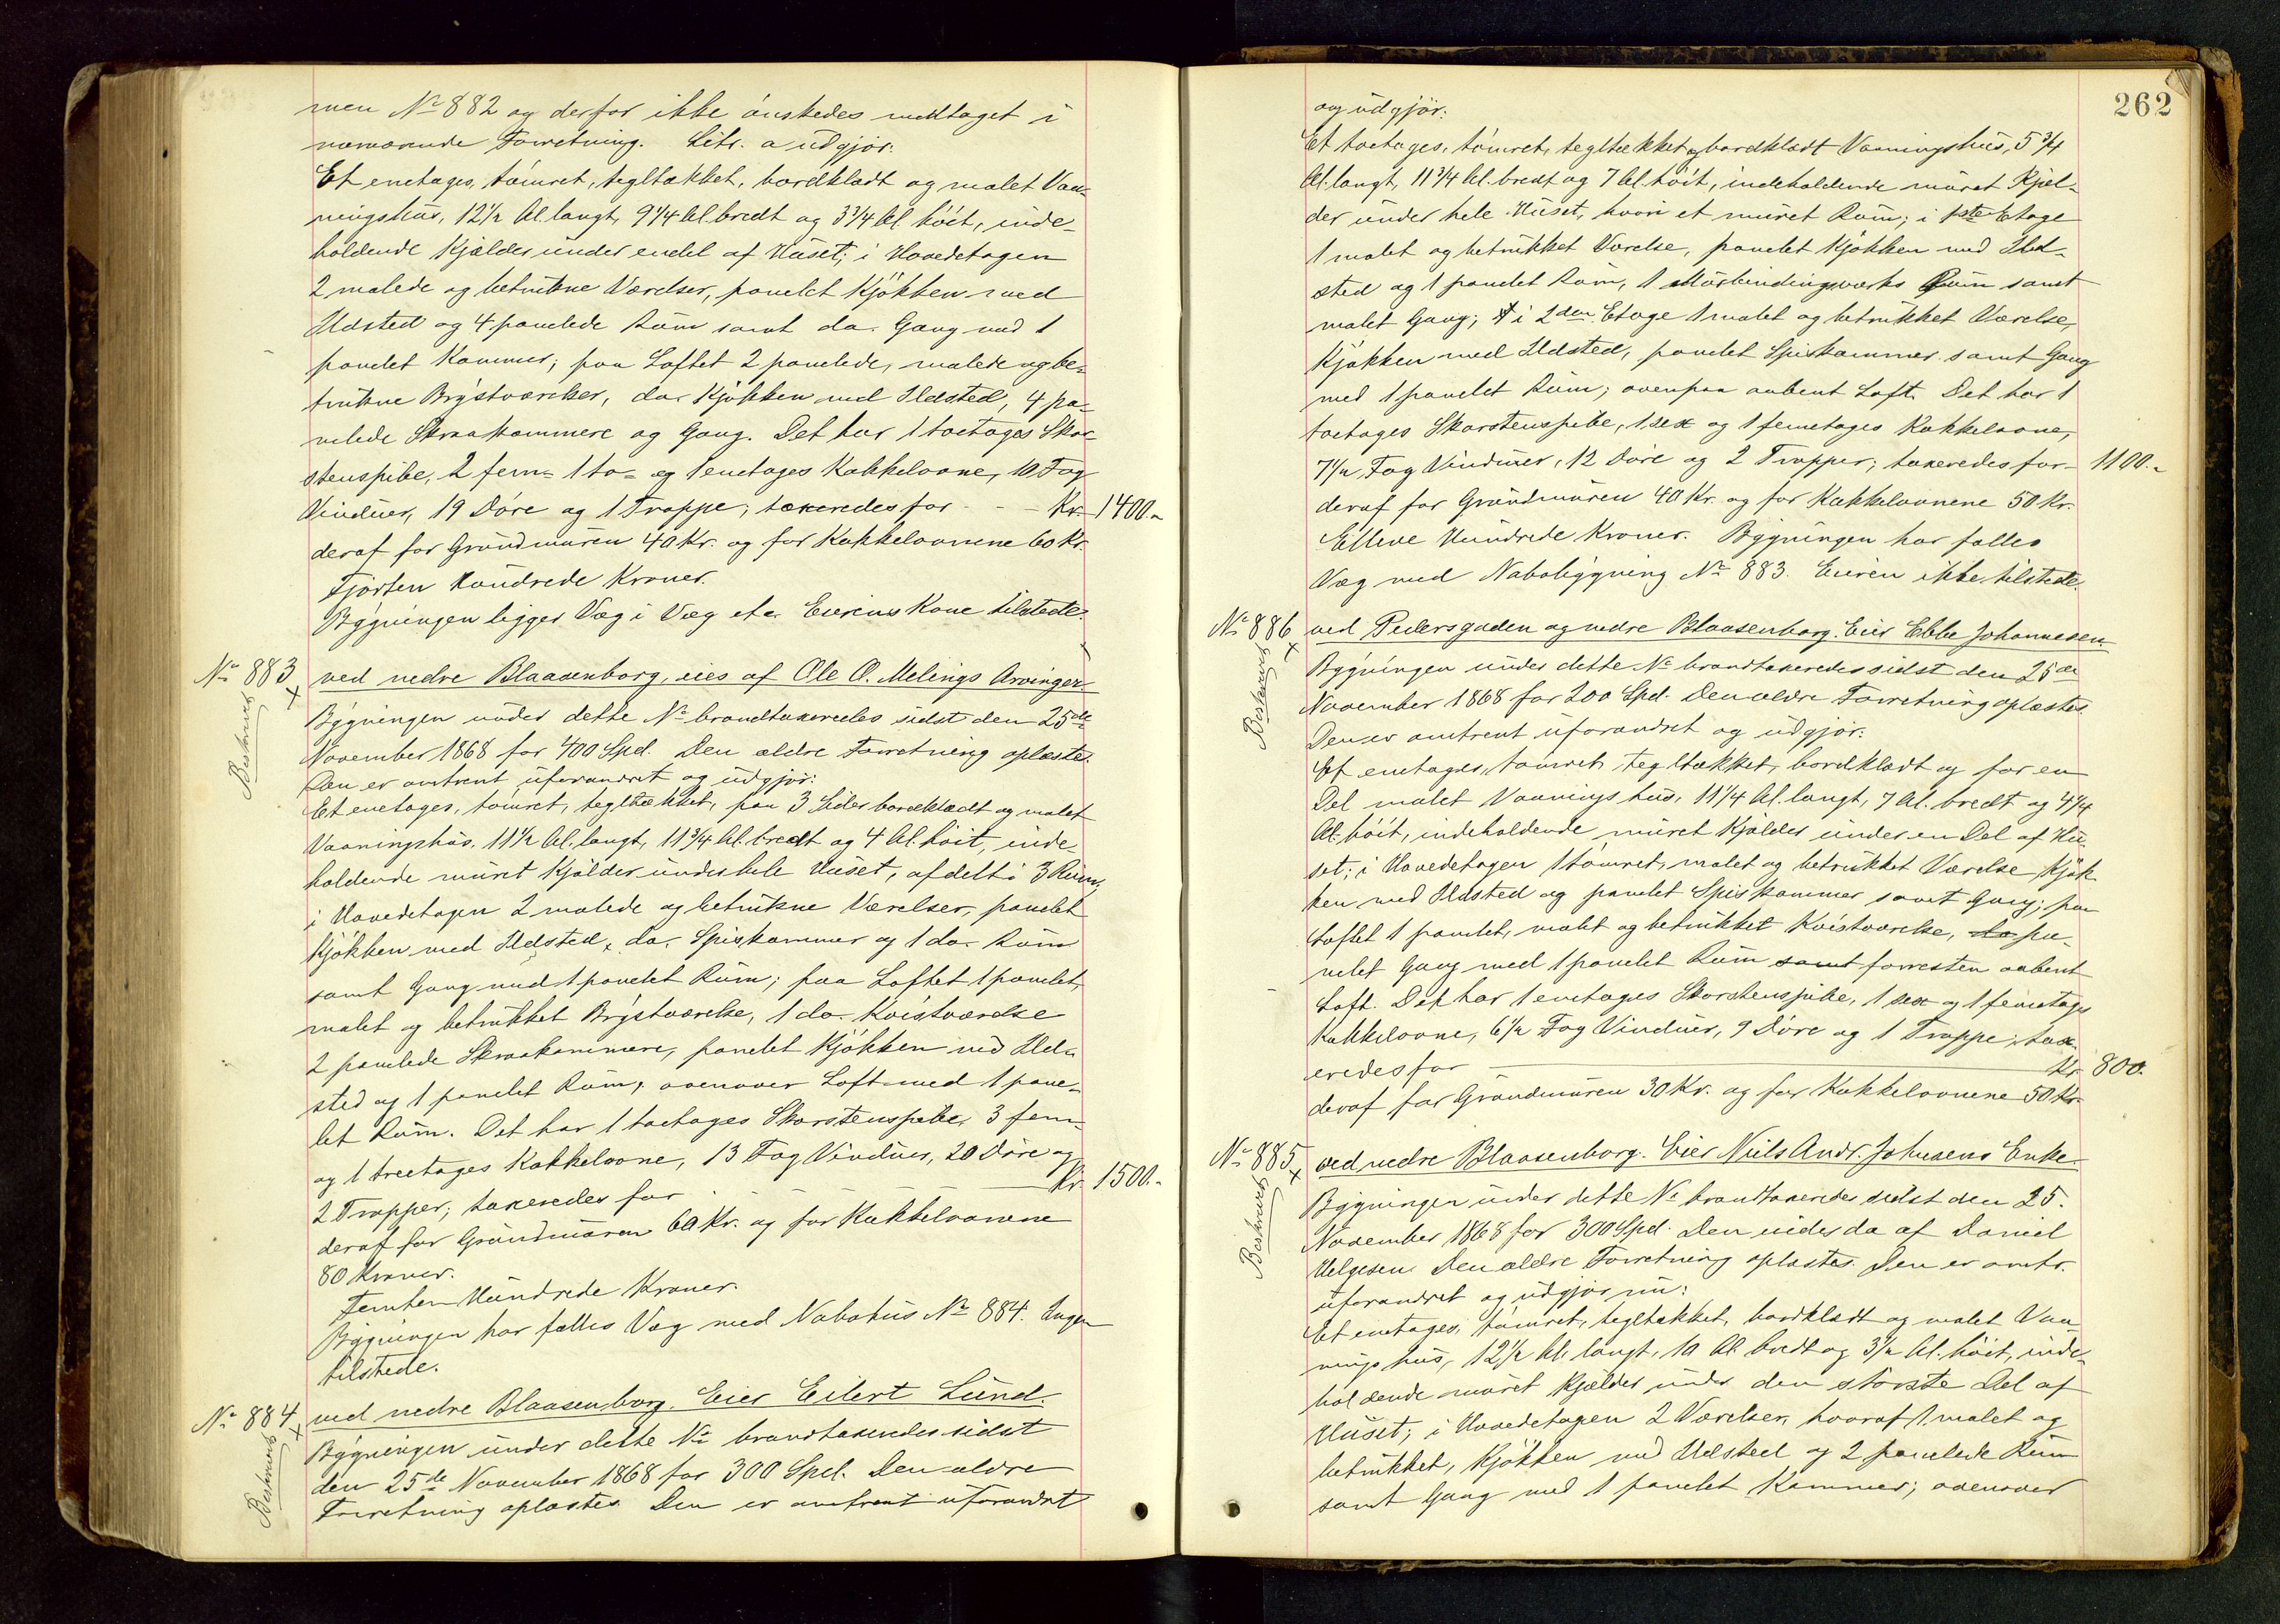 men No 882 og derfor ikke ónskedes medtaget i
nærværende Forretning. Litr. a udgjór:
Et enetages, tómret, tegltækket, bordklædt og malet Vaa-
ningshus, 12 1/2 Al. langt, 9 1/4 Al. bredt og 3 3/4 Al. hóit, inde-
holdende Kjælder under endel af Huset; i Hovedetagen
2 malede og betrukne Værelser, panelet Kjókken med
Ildsted og 4 panelede Rum samt do. Gang med 1
panelet Kammer; paa Loftet 2 panelede, malede og be-
trukne Brystværelser, do. Kjókken med Ildsted, 4 pa-
nelede Skraakammere og Gang. Det har 1 toetages Skor-
stenspibe, 2 fem- 1 to- og 1 enetages Kakkelovne, 10 Fag
Vinduer, 19 Dóre og 1 Trappe; taxeredes for - - - Kr. 1400.-
deraf for Grundmuren 40 Kr. og for Kakkelovnene 60 Kr.
Fjorten Hundrede Kroner.
Bygningen ligger Væg i Væg etc. Eierens Kone tilstede.
No 883 ved nedre Blaasenborg, eies af Ole O. Melings Arvinger.
Beskrevet
Bygningen under dette No brandtaxeredes sidst den 25de
November 1868 for 400 Spd. Den ældre Forretning oplæstes.
Den er omtrent uforandret og udgjór:
Et enetages, tómret, tegltækket, paa 3 Sider bordklædt og malet
Vaaningshus, 11 1/2 Al. langt, 11 3/4 Al. bredt og 4 Al. hóit, inde-
holdende muret Kjælder under hele Huset, afdelt i 3 Rum,
i Hovedetagen 2 malede og betrukne Værelser, panelet
Kjókken med Ildsted, do. Spiskammer og 1 do. Rum
samt Gang med 1 panelet Rum; paa Loftet 1 panelet,
malet og betrukket Brystværelse, 1 do. Kvistværelse
2 panelede Skraakammere, panelet Kjókken med Ild-
sted og 1 panelet Rum, ovenover Loft med 1 pane-
let Rum. Det har 1 toetages Skorstenspibe, 3 fem-
og 1 treetages Kakkelovne, 13 Fag Vinduer, 20 Dóre og
2 Trapper; taxeredes for - - - Kr. 1500.-
deraf for Grundmuren 60 Kr. og for Kakkelovnene
80 Kroner.
Femten Hundrede Kroner.
Bygningen har fælles Væg med Nabohus No 884. Ingen
tilstede.
No 884 ved nedre Blaasenborg. Eier Eilert Lund.
Beskrevet
Bygningen under dette No brandtaxeredes sidst
den 25de November 1868 for 300 Spd. Den ældre
Forretning oplæstes. Den er omtrent uforandret
262
og udgjór:
Et toetages, tómret, tegltækket og bordklædt Vaaningshus, 5 3/4
Al. langt, 11 3/4 Al. bredt og 7 Al. hóit, indeholdende muret Kjæl-
der under hele Huset, hvori et muret Rum; i 1ste Etage
1 malet og betrukket Værelse, panelet Kjókken med Ild-
sted og 1 panelet Rum, 1 Murbindingsværks Rum samt
malet Gang; i 2den Etage 1 malet og betrukket Værelse,
Kjókken med Ildsted, panelet Spiskammer samt Gang
med 1 panelet Rum; ovenpaa aabent Loft. Det har 1
toetages Skorstenspibe, 1 sex og 1 femetages Kakkelovne,
7 1/2 Fag Vinduer, 12 Dóre og 2 Trapper; taxeredes for - 1100.-
deraf for Grundmuren 40 Kr. og for Kakkelovnene 50 Kr.
Elleve Hundrede Kroner. Bygningen har fælles
Væg med Nabobygning No 883. Eieren ikke tilstede.
No 886 ved Pedersgaden og nedre Blaasenborg. Eier Ebbe Johannesen.
Beskrevet
Bygningen under dette No brandtaxeredes sidst den 25de
November 1868 for 200 Spd. Den ældre Forretning oplæstes.
Den er omtrent uforandret og udgjór:
Et enetages, tómret, tegltækket, bordklædt og for en
Del malet Vaaningshus, 11 1/4 Al. langt, 7 Al. bredt og 4 1/4
Al. hóit, indeholdende muret Kjælder under en Del af Hu-
set; i Hovedetagen 1 tómret, malet og betrukket Værelse, Kjók-
ken med Ildsted og panelet Spiskammer samt Gang; paa
Loftet 1 panelet, malet og betrukket Kvistværelse, do pa-
nelet Gang med 1 panelet Rum samt forresten aabent
Loft. Det har 1 enetages Skorstenspibe, 1 sex og 1 femetages
Kakkelovne, 6 1/2 Fag Vinduer, 9 Dóre og 1 Trappe; tax-
eredes for Kr. 800.
deraf for Grundmuren 30 Kr. og for Kakkelovnene 50 Kr.
No 885 ved nedre Blaasenborg. Eier Niels Andr. Johnsens Enke.
Beskrevet
Bygningen under dette No brandtaxeredes sidst den 25.
November 1868 for 300 Spd. Den eiedes da af Daniel
Helgesen. Den ældre Forretning oplæstes. Den er omtr.
uforandret og udgjór nu:
Et enetages, tómret, tegltækket, bordklædt og malet Vaa-
ningshus, 12 1/2 Al. langt, 10 Al. bredt og 3 1/2 Al. hóit, inde-
holdende muret Kjælder under den stórste Del af
Huset; i Hovedetagen 2 Værelser, hvoraf 1 malet og
betrukket, Kjókken med Ildsted og 2 panelede Rum
samt Gang med 1 panelet Kammer; ovenover